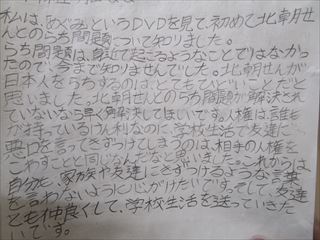 私は、めぐみというDVDを見て、初めて北朝せ
んとのらち問題について知りました。
らち問題は、身近で起こるようなことではなかっ
たので、今まで知りませんでした。北朝せんが
日本人をらちするのは、とてもひどいことだと
思いました。北朝せんとのらち問題が解決され
ていないなら早く解決してほしいです。人権は、誰も
が持っているけん利なのに、学校生活で友達に
悪口を言ってきずつけてしまうのは、相手の人権を
こわすことと同じなんだなと思いました。これからは、
自分も、家族や友達にきずつけるような言葉
を言わないように心がけたいです。そして、友達
とも仲良くして、学校生活を送っていきた
いです。